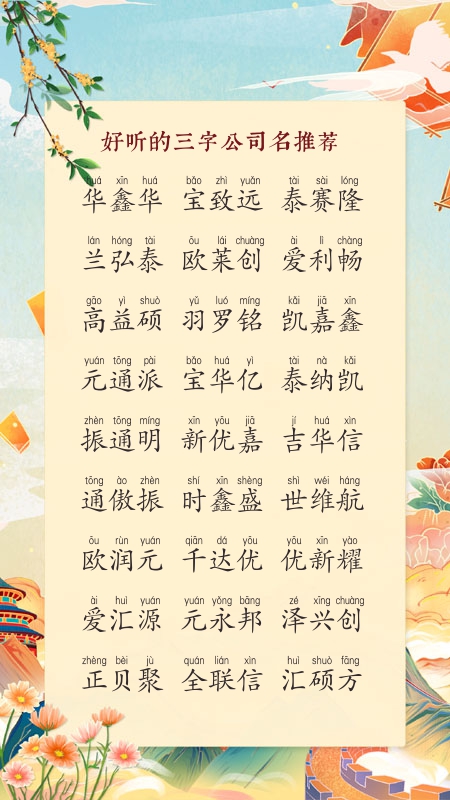 好听的三字公司名推荐
huá xīn huá bǎo zhì yuǎn tài sài lóng
华鑫华 宝致远 泰赛隆
lán hóng tài ōu lái chuàng ài lì chàng
兰弘泰 欧莱创 爱利畅
gāo yì shuò yǔ luó míng kǎi jiā xīn
高益硕 羽罗铭 凯嘉鑫
yuán tōng pài bǎo huá yì tài nà kǎi
元通派 宝华亿 泰纳凯
zhèn tōng míng xīn yōu jiā jí huá xìn
振通明 新优嘉 吉华信
tōng ào zhèn shí xīn shèng shì wéi háng
通傲振 时鑫盛 世维航
ōu rùn yuán qiān dá yōu yōu xīn yào
欧润元 千达优 优新耀
ài huì yuán yuán yǒng bāng zé xīng chuàng
爱汇源 元永邦 泽兴创
zhèng bèi jù quán lián xìn huì shuò fāng
正贝聚 全联信 汇硕方